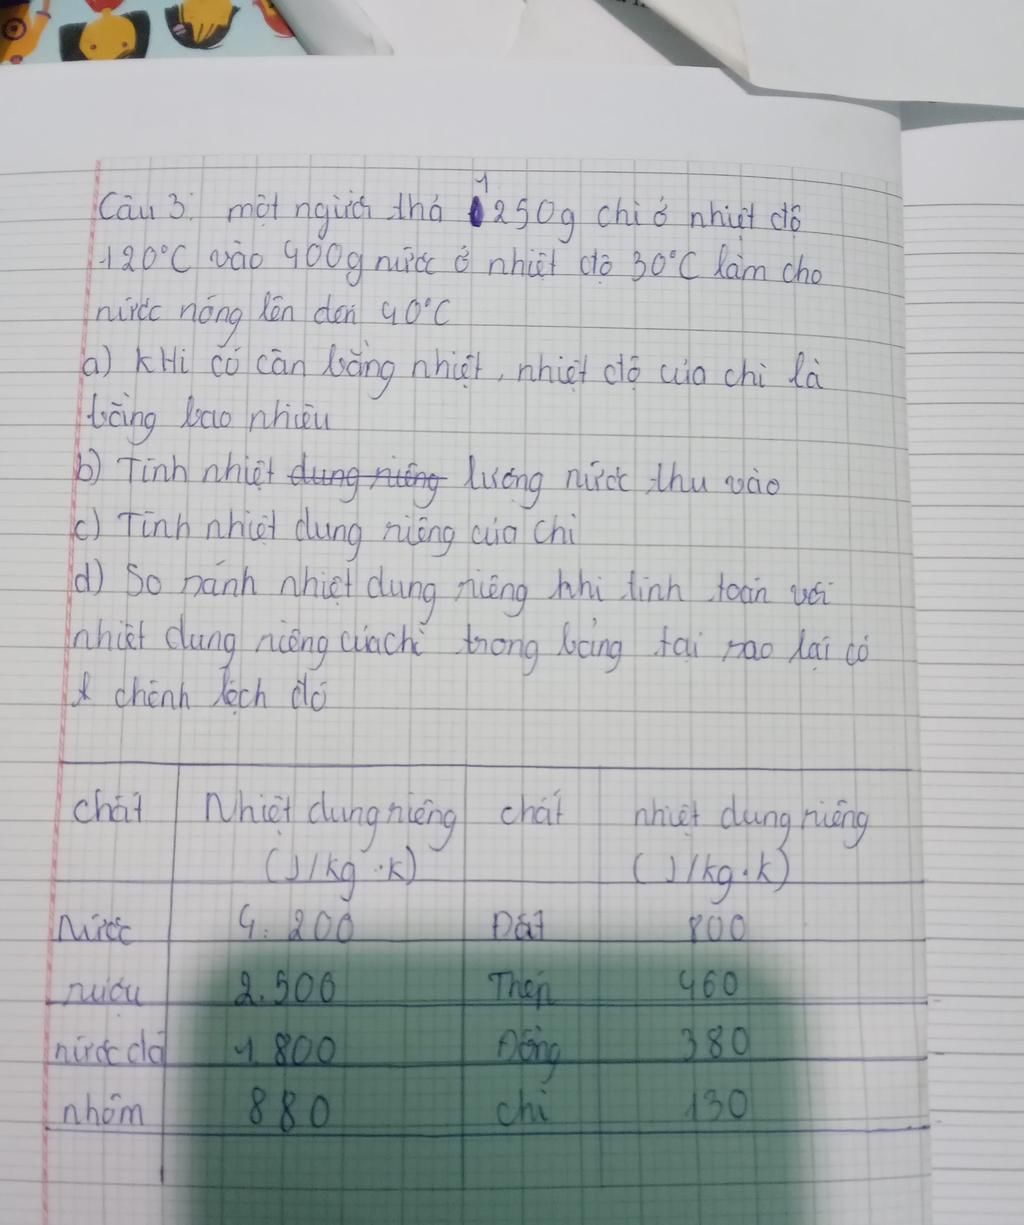 Câu 3: một người thả 1250g chì ở nhiệt độ
120°C vào 400g nước ở nhiệt độ 30°C làm cho
nước nóng lên đến 40°C
a) KHi có cân bằng nhiệt, nhiệt độ của chì là
bằng bao nhiêu
b) Tính nhiệt dung riêng lượng nước thu vào
c) Tính nhiệt dung riêng của chì
d) So sánh nhiệt dung riêng khi tính toán với
nhiệt dung riêng của chì trong bảng tại sao lại có
chênh lệch đó
chất Nhiệt dung riêng chất nhiệt dung riêng
(J/kg.k) (J/kg.k)
Nước 4.200 Đất 800
rượu 2.500 Thép 460
nước đá 1.800 Đồng 380
nhôm 880 chì 130